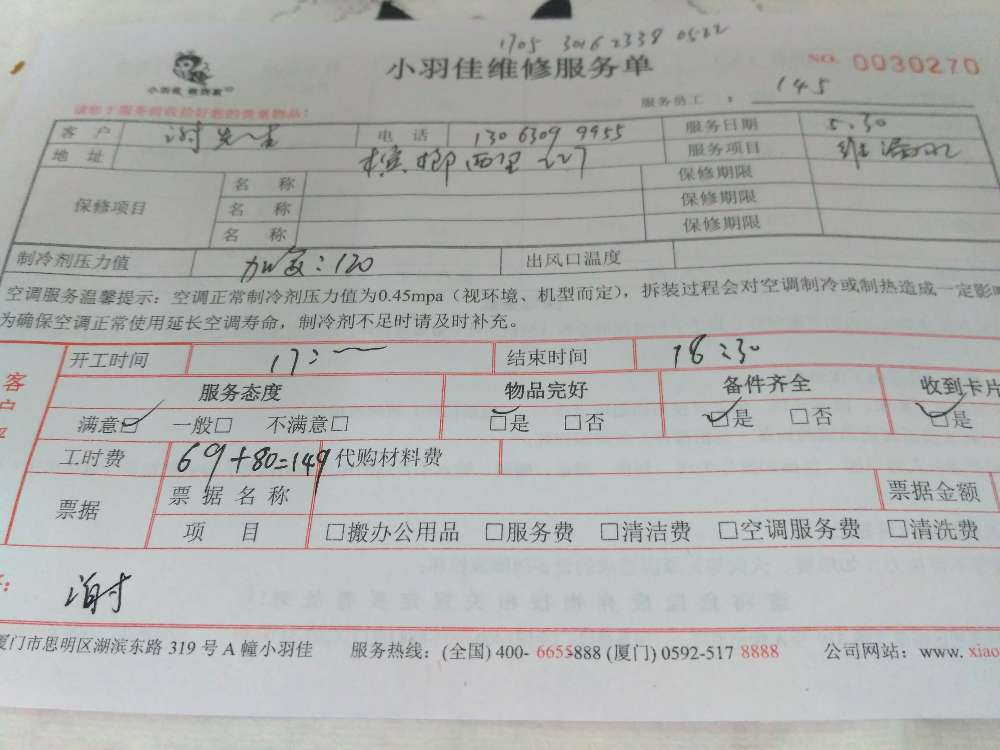 1705 3016 2338 0522
小羽佳维修服务单
NO. 0030270
小羽佳
请您于服务前收拾好您的贵重物品！
服务员工： 145
客户 谢先生 电话 130 6309 9955 服务日期 5.30
地址 槟榔西里 227 服务项目 维 漏水
保修项目 名称 保修期限
名称 保修期限
名称 保修期限
制冷剂压力值 加氟：120 出风口温度
空调服务温馨提示：空调正常制冷剂压力值为0.45mpa（视环境、机型而定），拆装过程会对空调制冷或制热造成一定影
为确保空调正常使用延长空调寿命，制冷剂不足时请及时补充。
客户
开工时间 17: 结束时间 18:30
服务态度 物品完好 备件齐全 收到卡片
满意☑ 一般□ 不满意□ ☑是 □否 ☑是 □否 ☑是
工时费 69+80=149 代购材料费
票据 票据名称 票据金额
项目 □搬办公用品 □服务费 □清洁费 □空调服务费 □清洗费
谢
厦门市思明区湖滨东路 319 号 A 幢小羽佳 服务热线：(全国) 400- 6655-888 (厦门) 0592-517 8888 公司网站：www. xiao